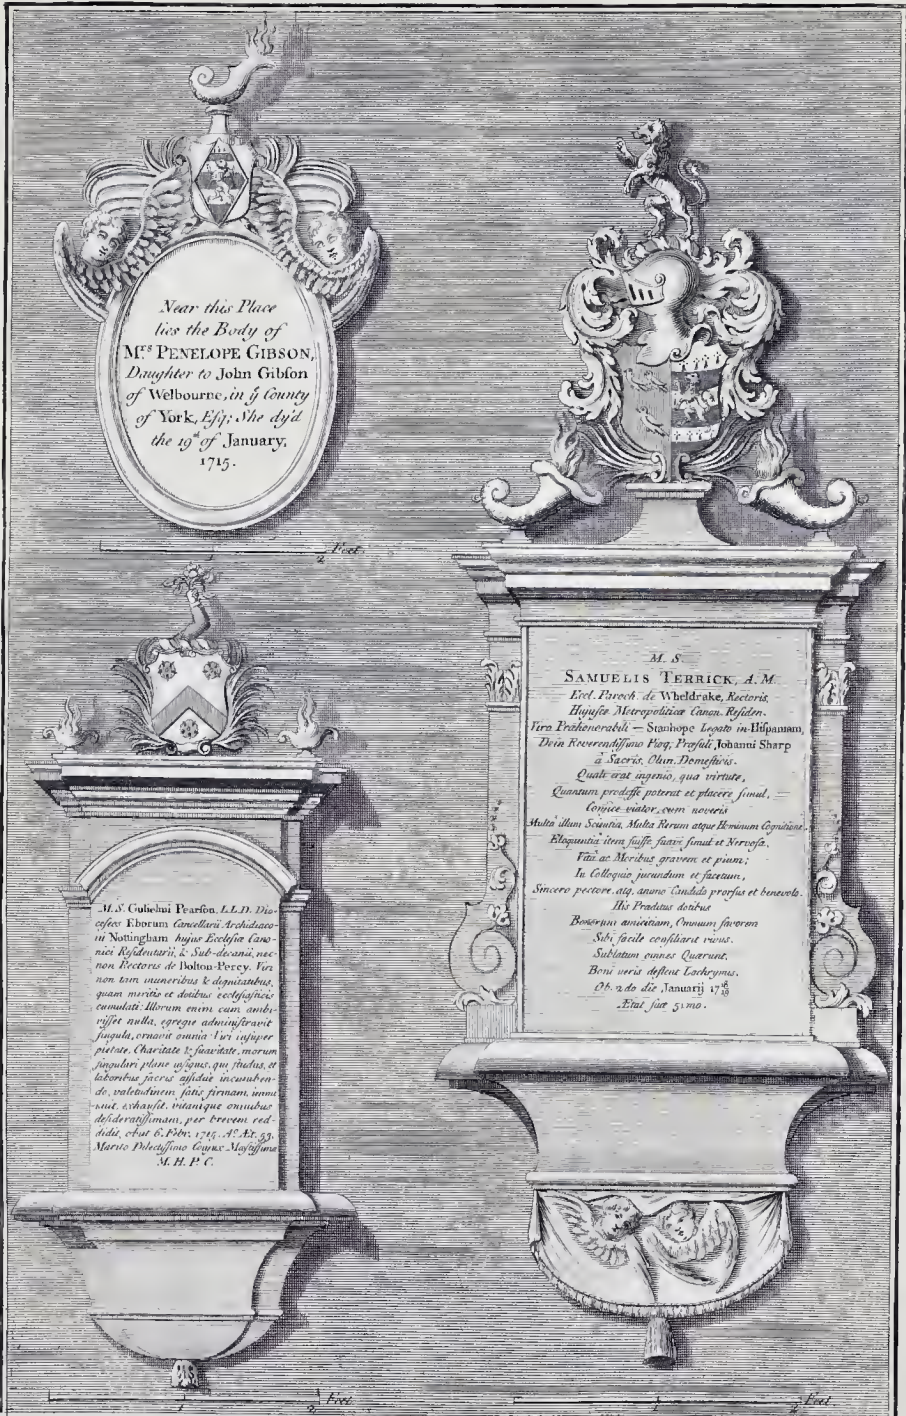 Near this Place
lies the Body of
Mrs PENELOPE GIBSON,
Daughter to John Gibſon
of Welbourne, in ẙ County
of York, Eſq; She dy'd
the 19th of January,
1715.
2 Feet
M. S. Gulielmi Pearſon, L.L.D. Dio-
ceſeos Eborum Cancellarii Archidiaco-
ni Nottingham hujus Ecclesiæ Cano-
nici Reſidentarii, & Sub-decani, nec-
non Rectoris de Bolton-Percy. Viri
non tam muneribus & dignitatibus,
quam meritis et dotibus eccleſiaſticis
cumulati: Illorum enim cum ambi-
viſſet nulla, egregie adminiſtravit
ſingula, ornavit omnia Viri inſuper
pietate, Charitate & ſuavitate, morum
ſingulari plane inſignis, qui ſtudiis, et
laboribus ſacris aſſiduè incumben-
do, valetudinem ſatis firmam, immi
nuit, exhauſit, vitamque omnibus
deſideratiſſimam, per brevem red-
didit, obiit 6. Febr. 1715. Ao. Æt. 53.
Marito Dilectiſſimo Conjux Mæſtiſſima
M. H. P. C.
1 2 Feet
M. S.
SAMUELIS TERRICK, A. M.
Ecel. Paroch. de Wheldrake, Rectoris,
Hujuſce Metropoliticæ Canon. Reſiden.
Viro Præhonorabili — Stanhope Legato in Hiſpaniam,
Dein Reverendiſſimo Pioq; Præſuli Johanni Sharp
à Sacris, Olim, Domeſticis.
Quali erat ingenio, qua virtute,
Quantum prodeſſe poterat et placere ſimul,
Conjice viator, cum noveris
Multâ illum Scientia, Multa Rerum atque Hominum Cognitione,
Eloquentiâ item fuiſſe ſuavi ſimul et Nervoſa,
Vitâ ac Moribus gravem et pium;
In Colloquio jucundum et facetum,
Sincero pectore, atq. animo Candido prorſus et benevolo.
His Præditus dotibus
Bonorum amicitiam, Omnium favorem
Sibi facile conſiliarit vivus.
Sublatum omnes Quærunt,
Boni veris deflent Lachrymis.
Ob. 2do die Januarij 1718/19
Ætat ſuæ 51mo.
1 2 Feet